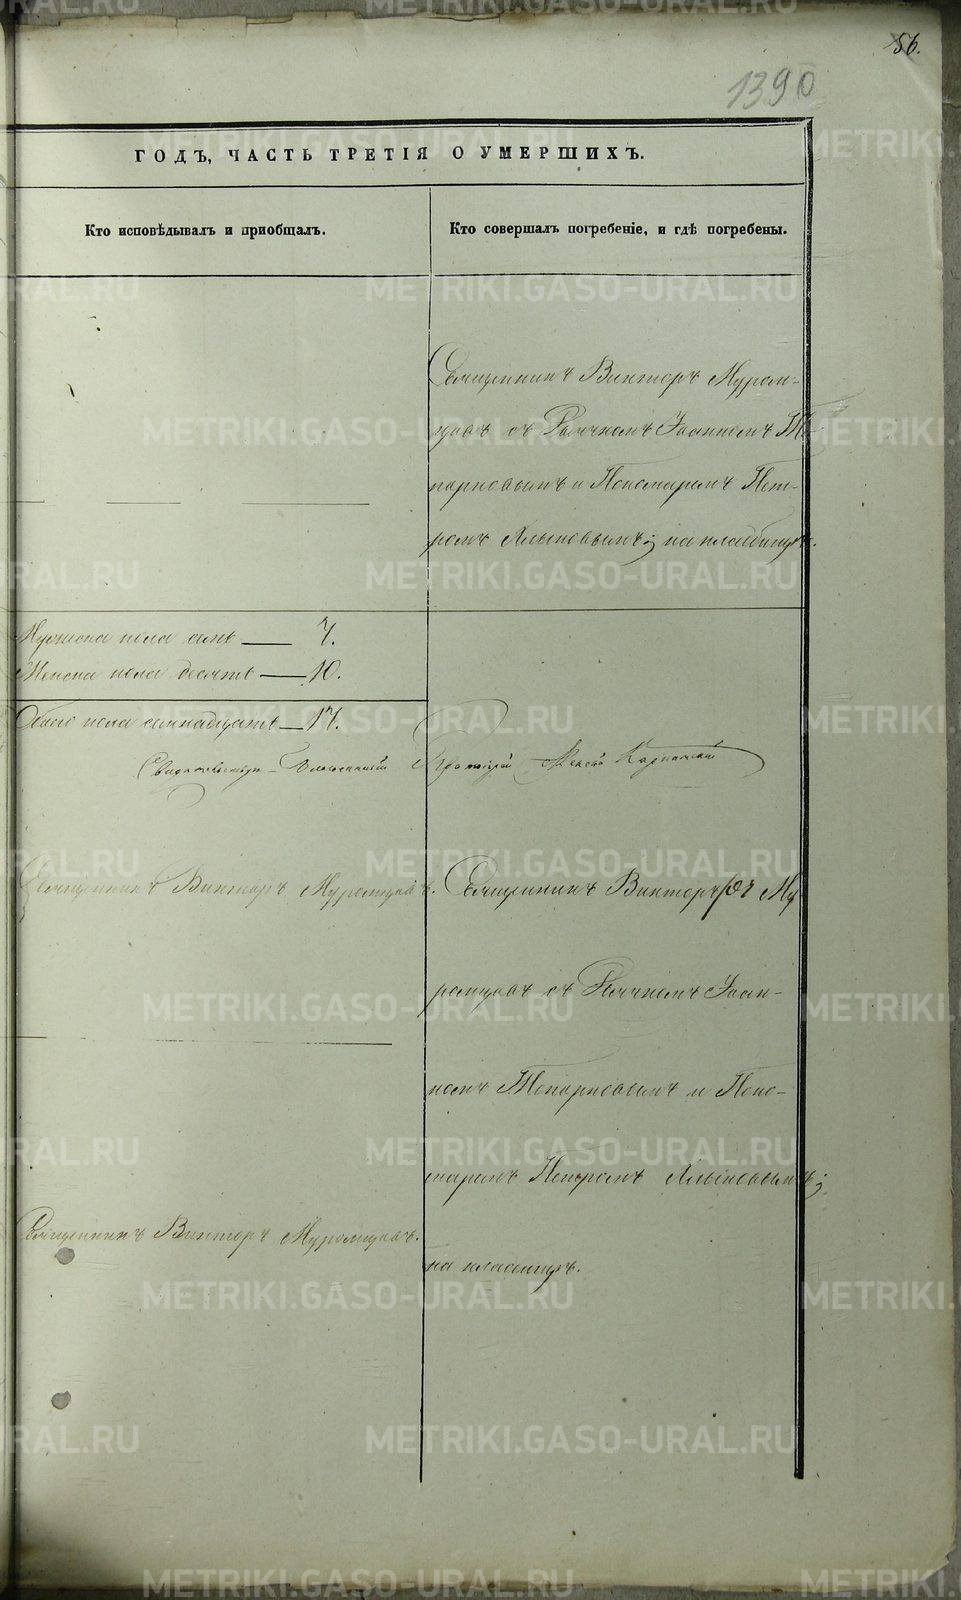 56.
1390
ГОДЪ, ЧАСТЬ ТРЕТІЯ О УМЕРШИХЪ.
Кто исповѣдывалъ и пріобщалъ.
Кто совершалъ погребеніе, и гдѣ погребены.
Священникъ Викторъ Муром-
цовъ съ Дьячкомъ Іоанномъ То-
порковымъ и Пономаремъ Пет-
ромъ Хлыновымъ; на кладбищѣ.
Мужеска пола семь — 7.
Женска пола десять — 10.
Обоего пола семнадцать — 17.
Свидѣтельствовалъ Благочинный Протоіерей
Священникъ Викторъ Муромцовъ.
Священникъ Викторъ Му
ромцовъ съ Дьячкомъ Іоан-
номъ Топорковымъ и Поно-
маремъ Петромъ Хлыновымъ;
на кладбищѣ.
Священникъ Викторъ Муромцовъ.
METRIKI.GASO-URAL.RU